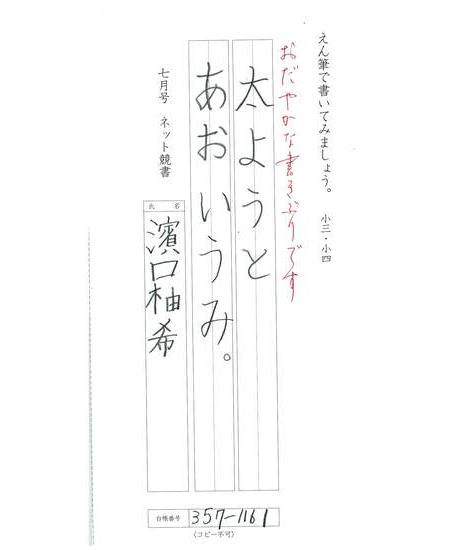 えん筆で書いてみましょう。 小三・小四
おだやかな書きぶりです
太ようと
あおいうみ。
七月号 ネット競書
氏名
濱口柚希
台帳番号 357-1161
(コピー不可)